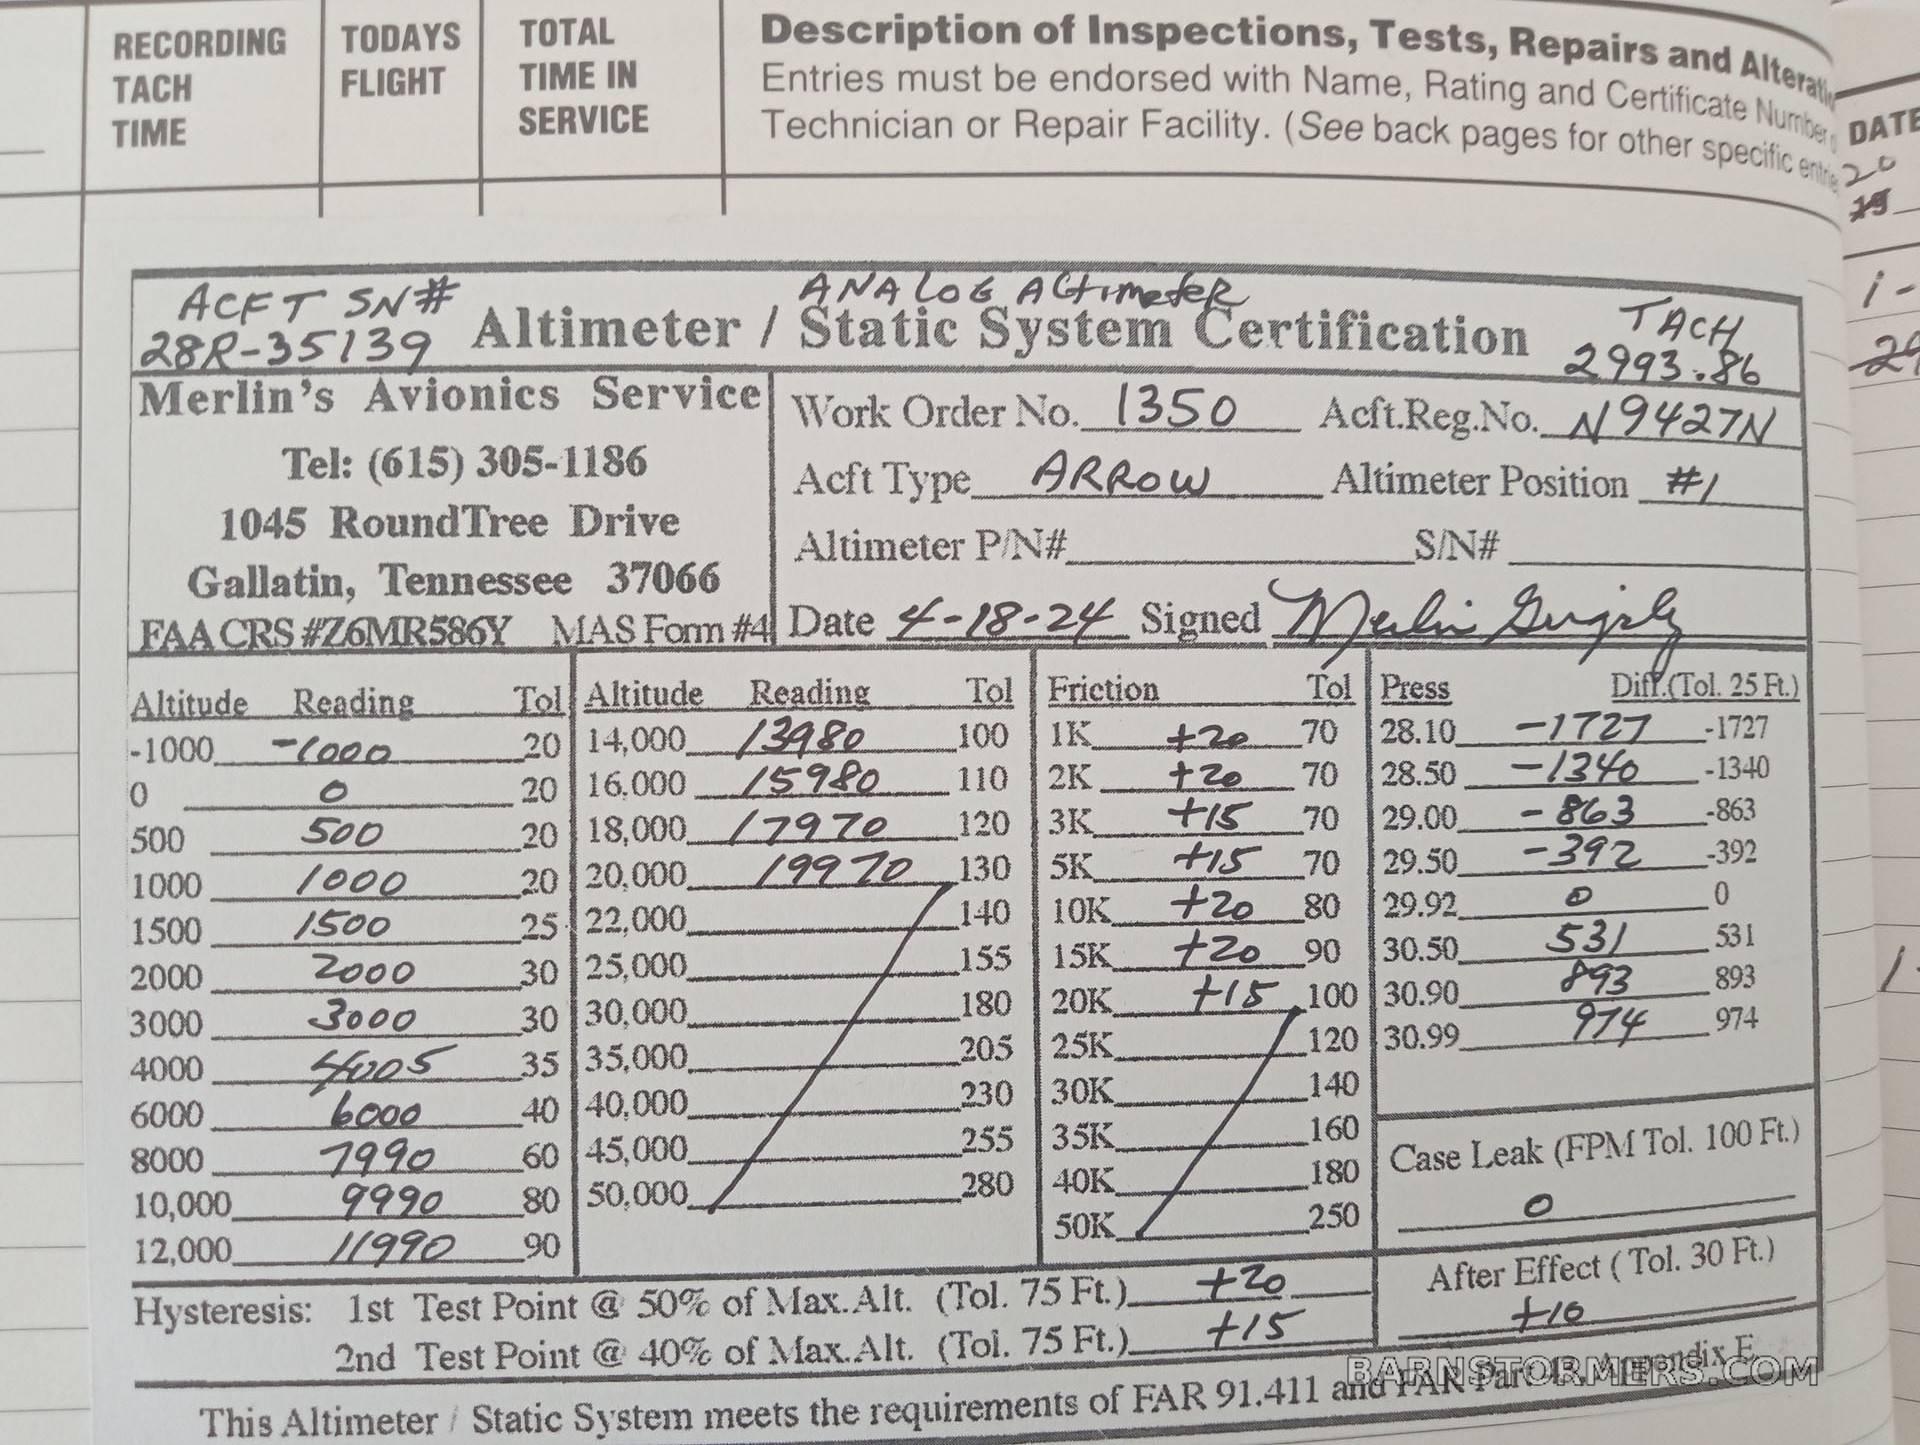 RECORDING TACH TIME
TODAYS FLIGHT
TOTAL TIME IN SERVICE
Description of Inspections, Tests, Repairs and
Entries must be endorsed with Name, Rating and Certificate Number
Technician or Repair Facility. (See back pages for other specific
DATE
20
19
ACFT SN#
28R-35139
ANALOG ALtimeteR
Altimeter / Static System Certification
TACH
2993.86
Merlin's Avionics Service
Tel: (615) 305-1186
1045 RoundTree Drive
Gallatin, Tennessee 37066
FAA CRS #Z6MR586Y MAS Form #4
Work Order No. 1350 Acft.Reg.No. N9427N
Acft Type ARROW Altimeter Position #1
Altimeter P/N# S/N#
Date 4-18-24 Signed
Altitude Reading Tol
-1000 -1000 20
0 0 20
500 500 20
1000 1000 20
1500 1500 25
2000 2000 30
3000 3000 30
4000 4005 35
6000 6000 40
8000 7990 60
10,000 9990 80
12,000 11990 90
Altitude Reading Tol
14,000 13980 100
16,000 15980 110
18,000 17970 120
20,000 19970 130
22,000 140
25,000 155
30,000 180
35,000 205
40,000 230
45,000 255
50,000 280
Friction Tol
1K +20 70
2K +20 70
3K +15 70
5K +15 70
10K +20 80
15K +20 90
20K +15 100
25K 120
30K 140
35K 160
40K 180
50K 250
Press Diff.(Tol. 25 Ft.)
28.10 -1727 -1727
28.50 -1340 -1340
29.00 -863 -863
29.50 -392 -392
29.92 0 0
30.50 531 531
30.90 893 893
30.99 974 974
Case Leak (FPM Tol. 100 Ft.)
0
After Effect ( Tol. 30 Ft.)
+10
Hysteresis: 1st Test Point @ 50% of Max.Alt. (Tol. 75 Ft.) +20
2nd Test Point @ 40% of Max.Alt. (Tol. 75 Ft.) +15
This Altimeter / Static System meets the requirements of FAR 91.411 and FAR Part 43, Appendix E
BARNSTORMERS.COM